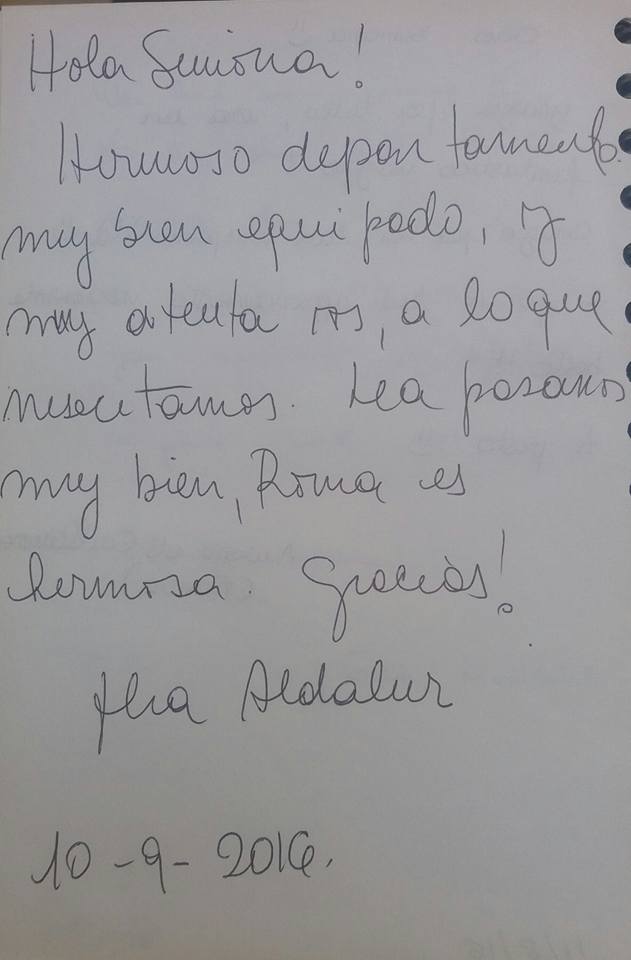 Hola Simona!
Hermoso departamento.
muy bien equipado, y
muy atenta vos, a lo que
nesecitamos. Lea pasamos
muy bien, Roma es
hermosa. Gracias!
Aldalur
10-9-2016.